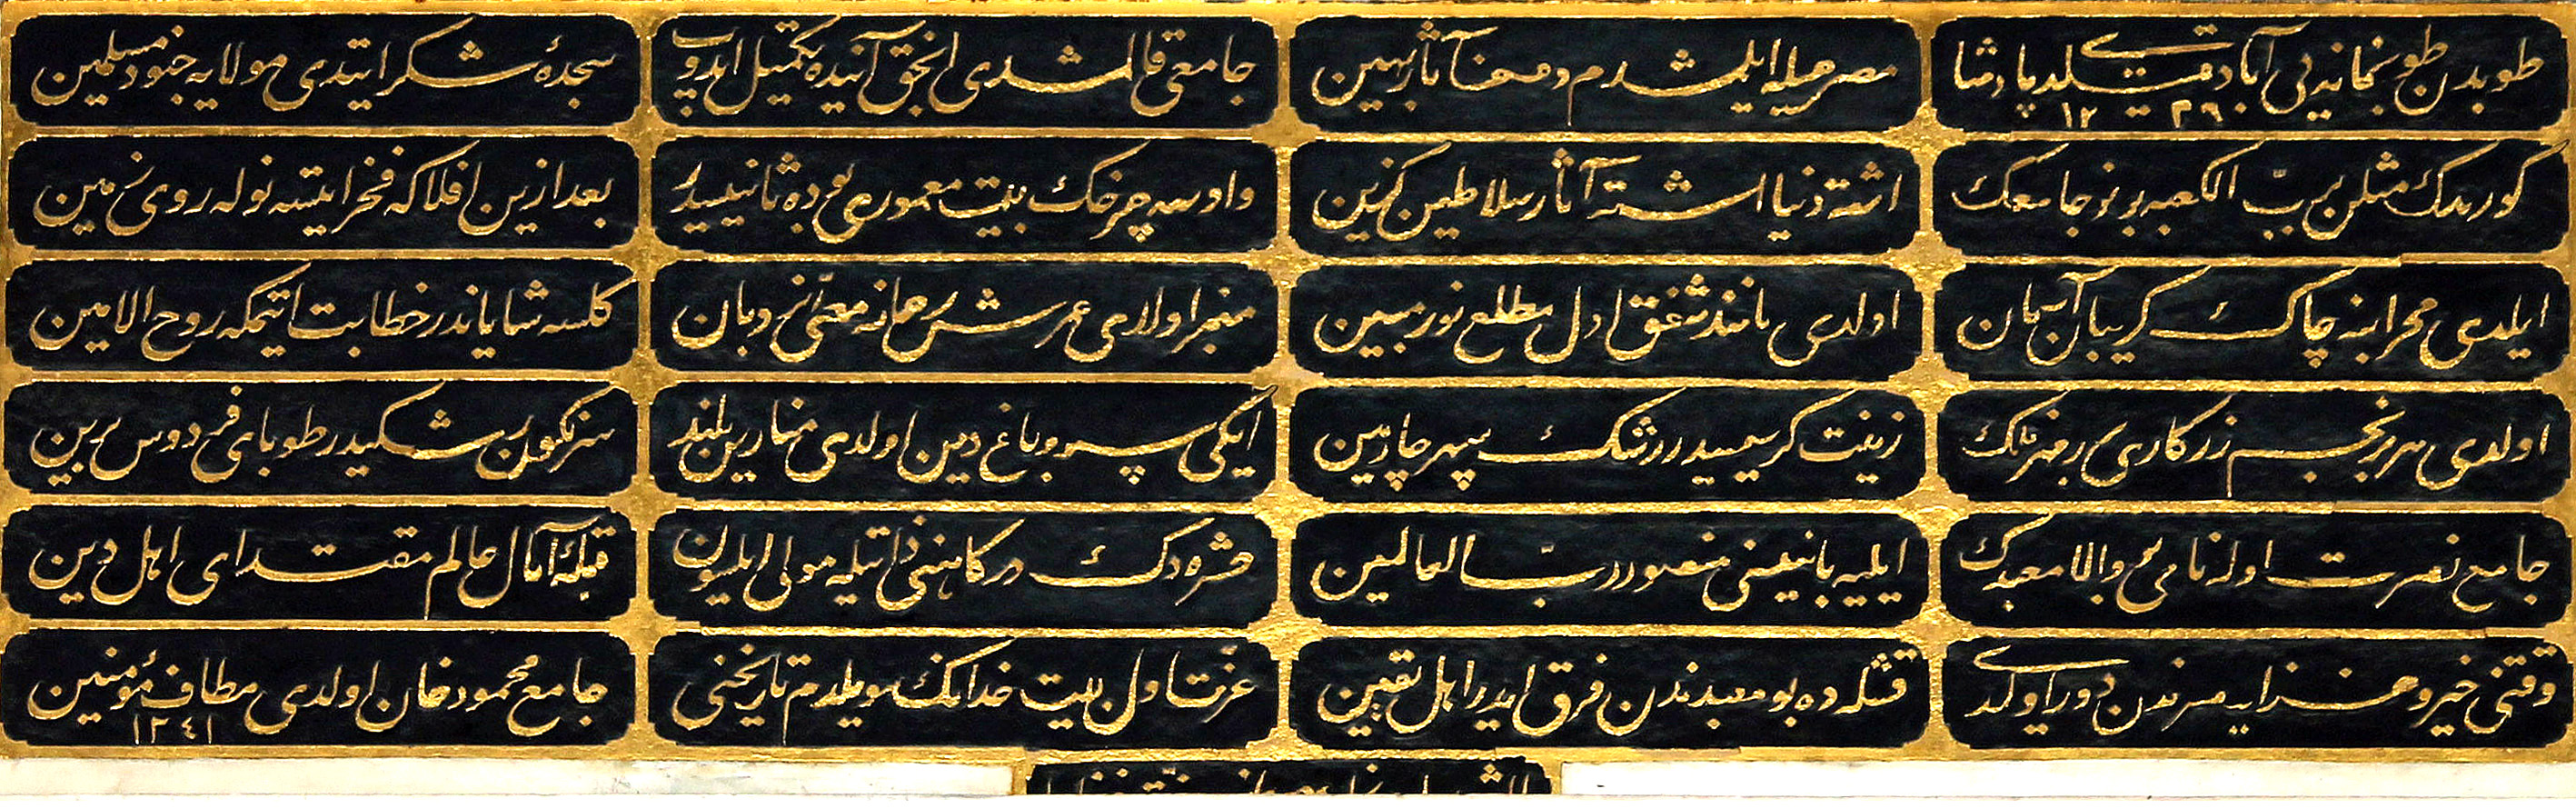 طوبدن طوبخانه یی آباد قیلدی پادشا ۱۲۳۹
مصرعیله ایلمشدم وصف آثار بهین
جامعی قالمشدی انجق آنیده تکمیل ایدوب
سجدهٔ شکر ایتدی مولایه جنود مسلمین
کورمدك مثلن برب الکعبه بو نو جامعك
اشته دنیا اشته آثار سلاطین کزین
وارسه چرخك بیت معموری بو ده ثانیسیدر
بعد ازین افلاکه فخر ایتسه نوله روی زمین
ایلدی محرابنه چاك کریبان آسمان
اولدی مانند شفق اول مطلع نور مبین
منبر اولدی عرش رحمانه معلّی نردبان
کلسه شایاندر خطابت ایتمکه روح الامین
اولدی هر بر نجم زرکاری
زینت کرسیسیدر رشك سپهر چارمین
ایکی سرو باغ دین اولدی منارین بلند
سرنکون رشکیدر طوبای فردوس برین
جامع نصرت اوله نامی بو والا معبدك
ایلیه بانیسنی منصور ربّ العالمین
حشره دك درکاهنی ذاتیله مولی ایلسون
قبلهٔ آمال عالم مقتدای اهل دین
وقتنی خیر و غزایه صرف
قشله ده بو معبدندن فرق ایدر اهل یقین
عزّتا اول بیت خدانك سویلدم تاریخنی
جامع محمود خان اولدی مطاف مؤمنین ۱۲٤۱